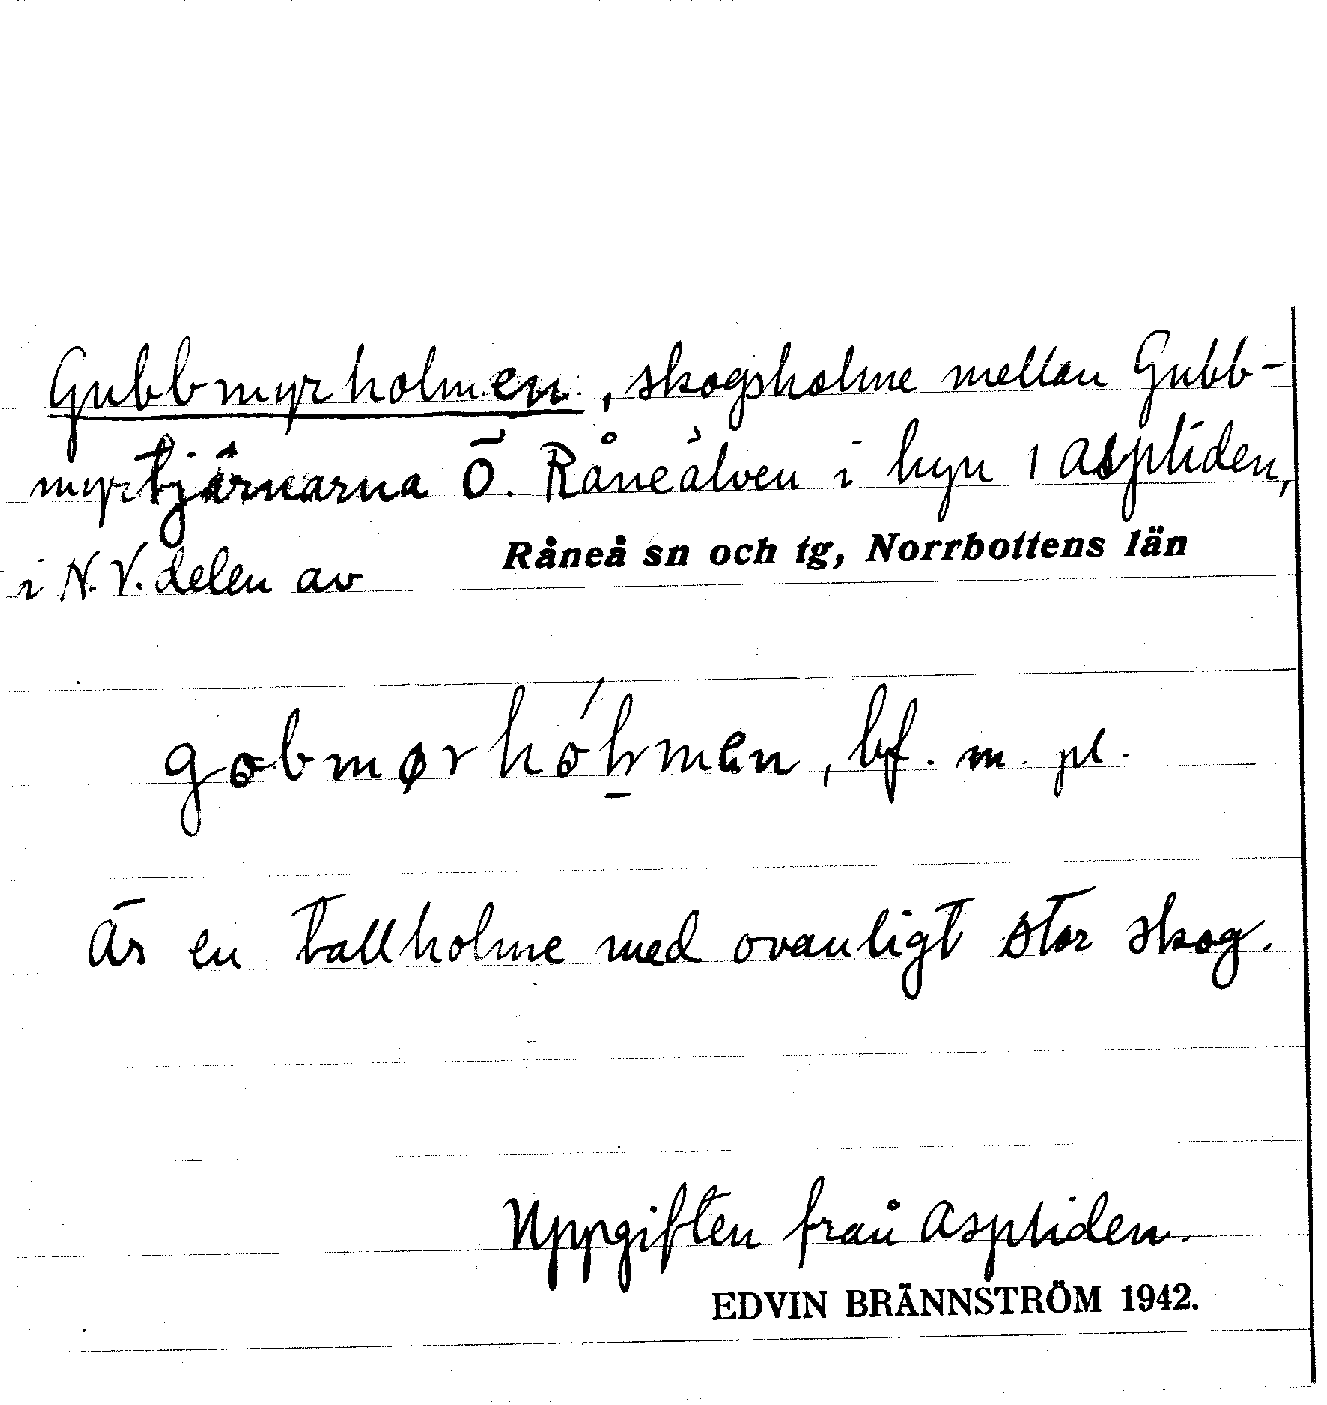 Gubbmyrholmen, skogsholme mellan Gubb-
myrtjärnarna Ö. Råneälven i hyn 1 Asptiden,
i N.V. delen av Råneå sn och tg, Norrbottens län
bf. m. pl.
Är en tallholme med ovanligt stor skog.
Uppgiften från Aspliden.
EDVIN BRÄNNSTRÖM 1942.